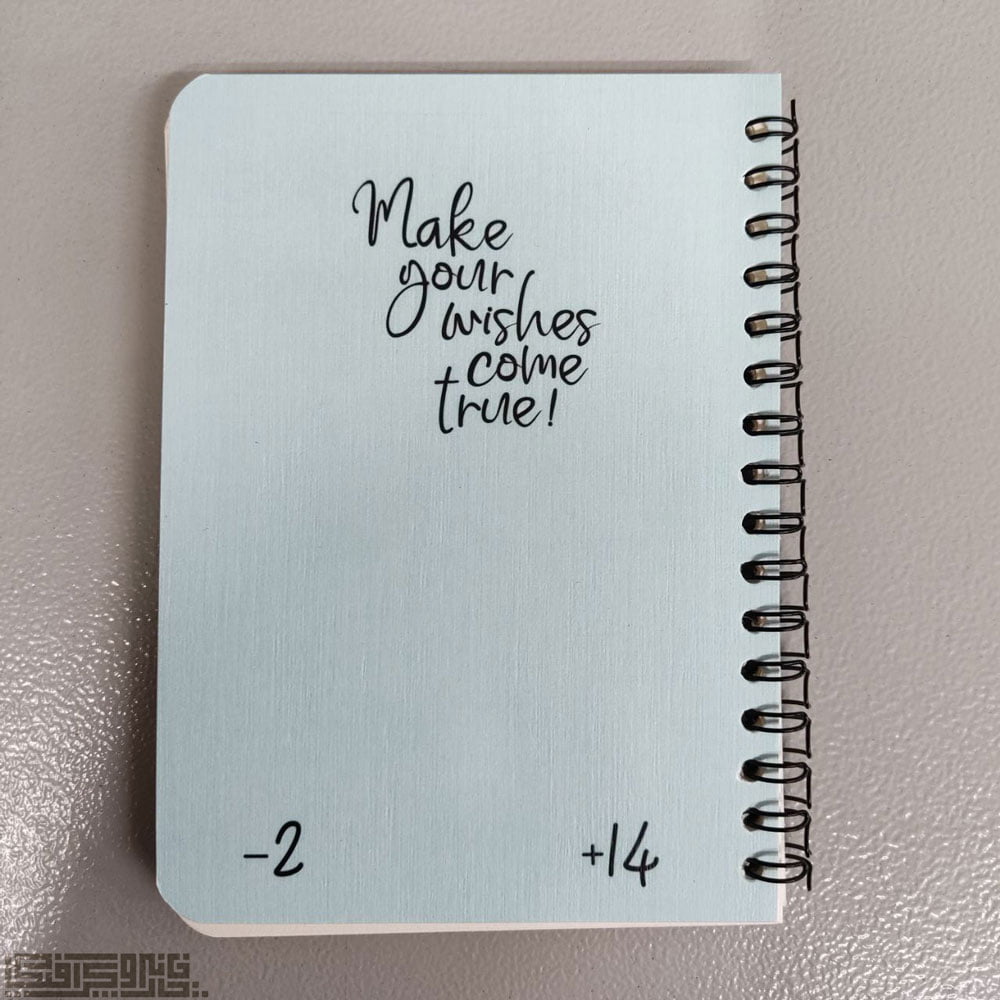 Make
your
wishes
come
true!
-2 +14